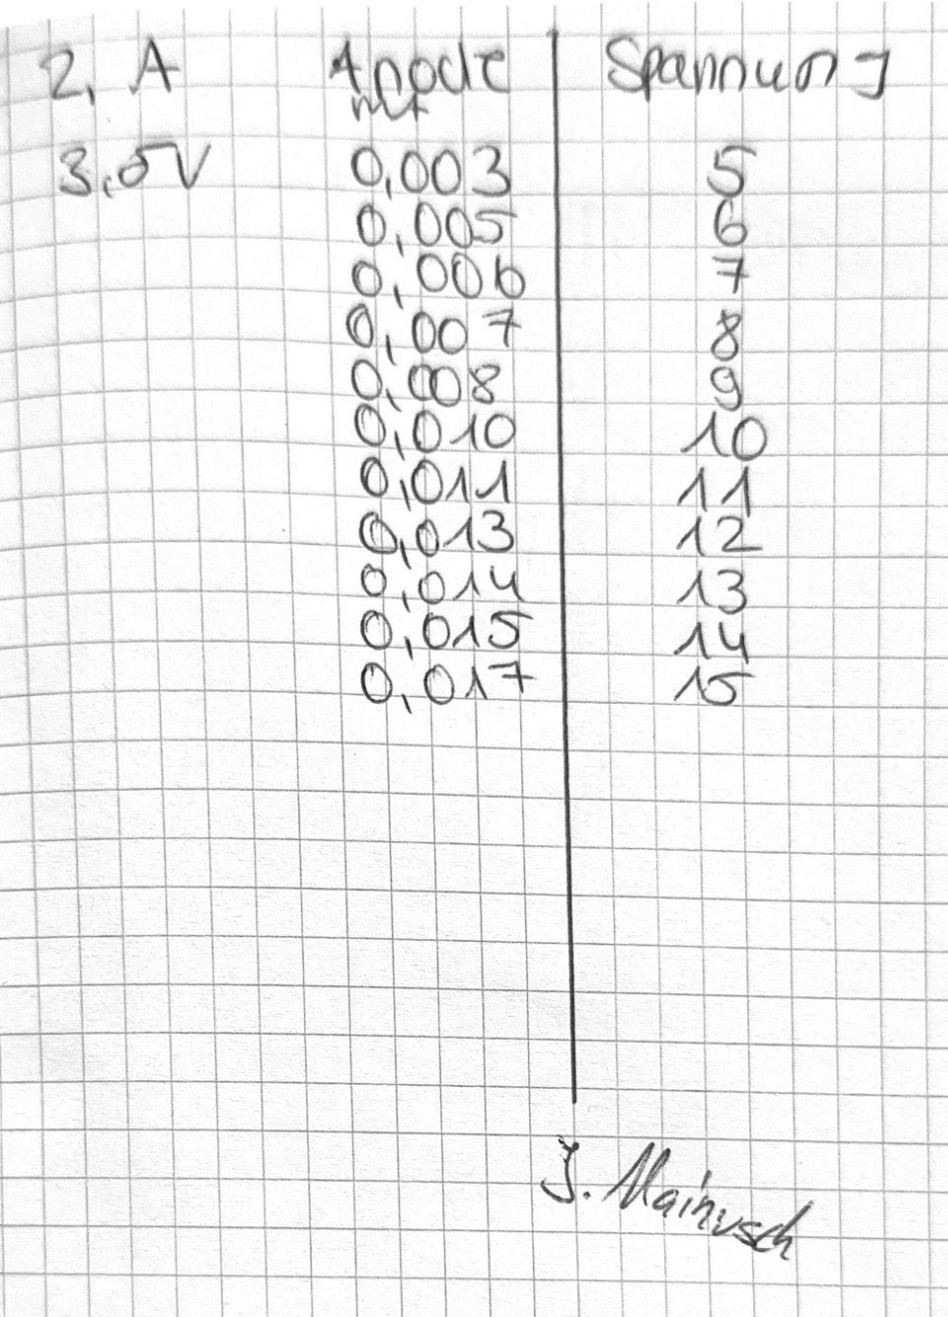 2. A Anode Spannung
mA
3.5V 0,003 5
0,005 6
0,006 7
0,007 8
0,008 9
0,010 10
0,011 11
0,013 12
0,014 13
0,015 14
0,017 15
J. Mainusch